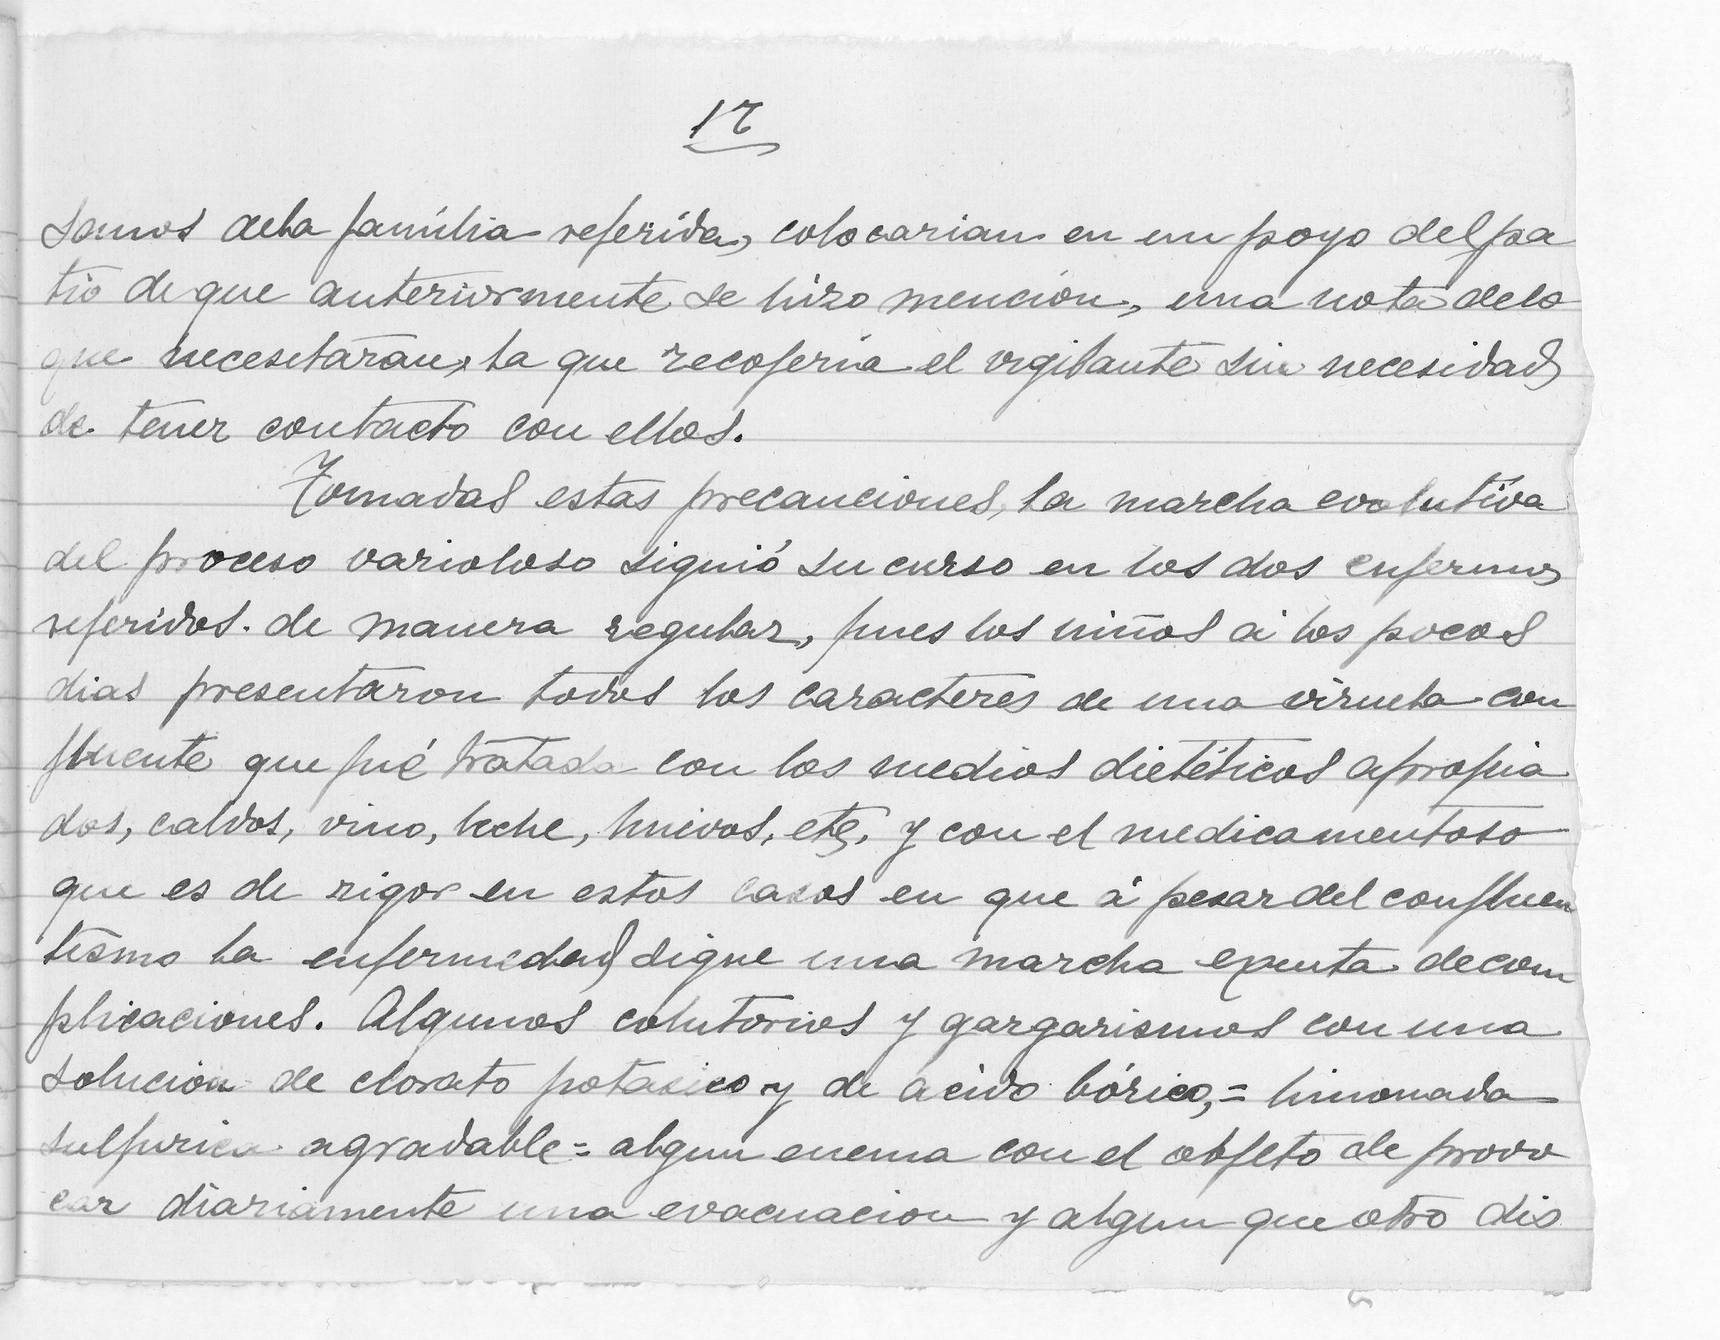 17
sanos dela família referida, colocarian en un poyo del pa
tio de que anteriormente se hizo mención, una nota delo
que necesitaran, la que recojería el vigilante sin necesidad
de tener contacto con ellos.
Tomadas estas precauciones, la marcha evolutiva
del proceso varioloso siguió su curso en los dos enfermos
referidos. de manera regular, pues los niños á los pocos
dias presentaron todos los caracteres de una viruela con
fluente que fué tratada con los medios dietéticos apropia
dos, caldos, vino, leche, huevos, etc, y con el medicamentoso
que es de rigor en estos casos en que á pesar del confluen
tismo la enfermedad sigue una marcha exenta de com
plicaciones. Algunos colutorios y gargarismos con una
solucion de clorato potasico y de acido bórico,= limonada
sulfurica agradable= algun enema con el objeto de provo
car diariamente una evacuacion y algun que otro dis